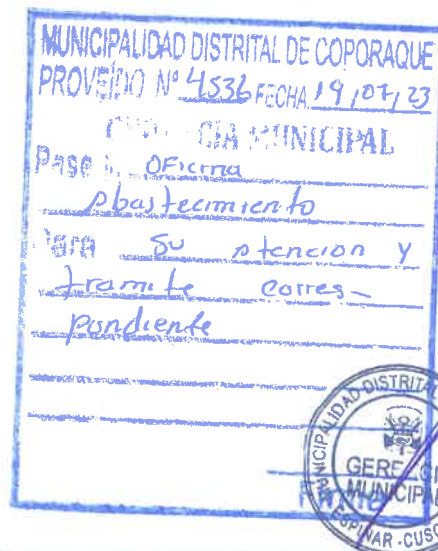 MUNICIPALIDAD DISTRITAL DE COPORAQUE
PROVEIDO Nº 4536 FECHA 19/07/23
GERENCIA MUNICIPAL
Pase a: OFicina
Abastecimiento
Para Su Atencion y
tramite corres-
pondiente
DISTRITAL
GERENCIA
MUNICIPAL
ESPINAR - CUSCO